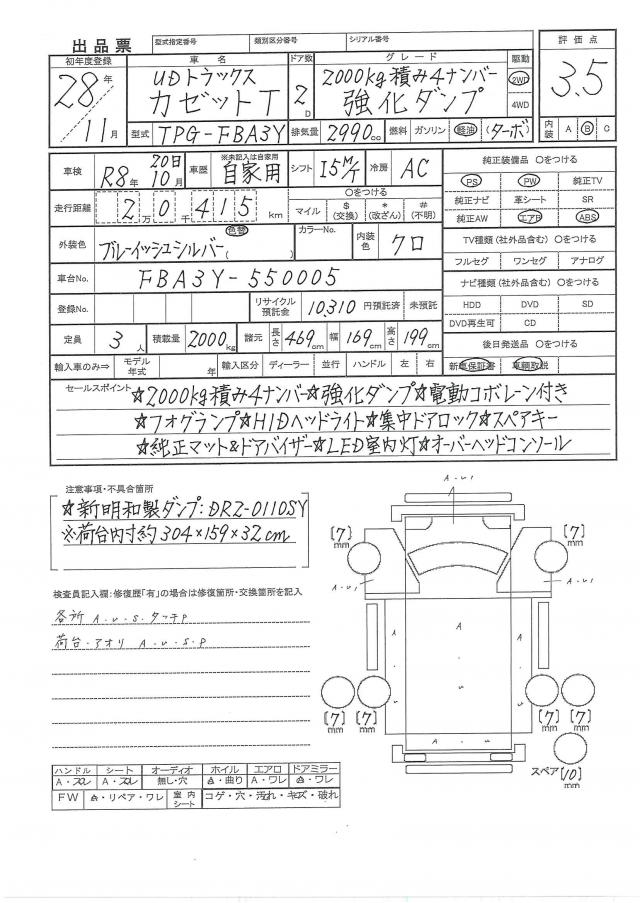 出品票 型式指定番号 類別区分番号 シリアル番号
初年度登録 車名 ドア数 グレード 駆動 評価点
28年 UDトラックス 2D 2000kg積み4ナンバー 2WD 3.5
カゼットT 強化ダンプ 4WD
11月 型式 TPG-FBA3Y 排気量 2990cc 燃料 ガソリン 軽油 (ターボ) 内装 A B C
車検 R8年 20日 10月 車歴 ※未記入は自家用 自家用 シフト I5 M/T 冷房 AC 純正装備品 ○をつける
PS PW 純正TV
走行距離 2万0千415km ○をつける 純正ナビ 革シート SR
マイル $(交換) *(改ざん) #(不明) 純正AW エアB ABS
外装色 ブルーイッシュシルバー 色替( ) カラーNo. 内装色 クロ TV種類(社外品含む) ○をつける
フルセグ ワンセグ アナログ
車台No. FBA3Y-550005 ナビ種類(社外品含む) ○をつける
登録No. リサイクル預託金 10,310 円預託済 未預託 HDD DVD SD
DVD再生可 CD
定員 3人 積載量 2000kg 諸元 長さ 469cm 幅 169cm 高さ 199cm 後日発送品 ○をつける
輸入車のみ⇒ モデル年式 年 輸入区分 ディーラー 並行 ハンドル 左 右 新車保証書 車輌取説
セールスポイント ☆2000kg積み4ナンバー☆強化ダンプ☆電動コボレーン付き
☆フォグランプ☆HIDヘッドライト☆集中ドアロック☆スペアキー
☆純正マット&ドアバイザー☆LED室内灯☆オーバーヘッドコンソール
注意事項・不具合箇所
☆新明和製ダンプ:DRZ-0110SY
※荷台内寸約304×159×32cm
検査員記入欄:修復歴「有」の場合は修復箇所・交換箇所を記入
各所 A.U.S.タッチP
荷台.アオリ A.U.S.P
A.U1
A
[7]mm [7]mm
A.U1 A.U1
A A A
S
[7]mm [7]mm [7]mm [7]mm
A.U.S
スペア [10]mm
ハンドル シート オーディオ ホイル エアロ ドアミラー
A・スレ A・スレ 無し・穴 A・曲り A・ワレ A・ワレ
FW A・リペア・ワレ 室内シート コゲ・穴・汚れ・キズ・破れ